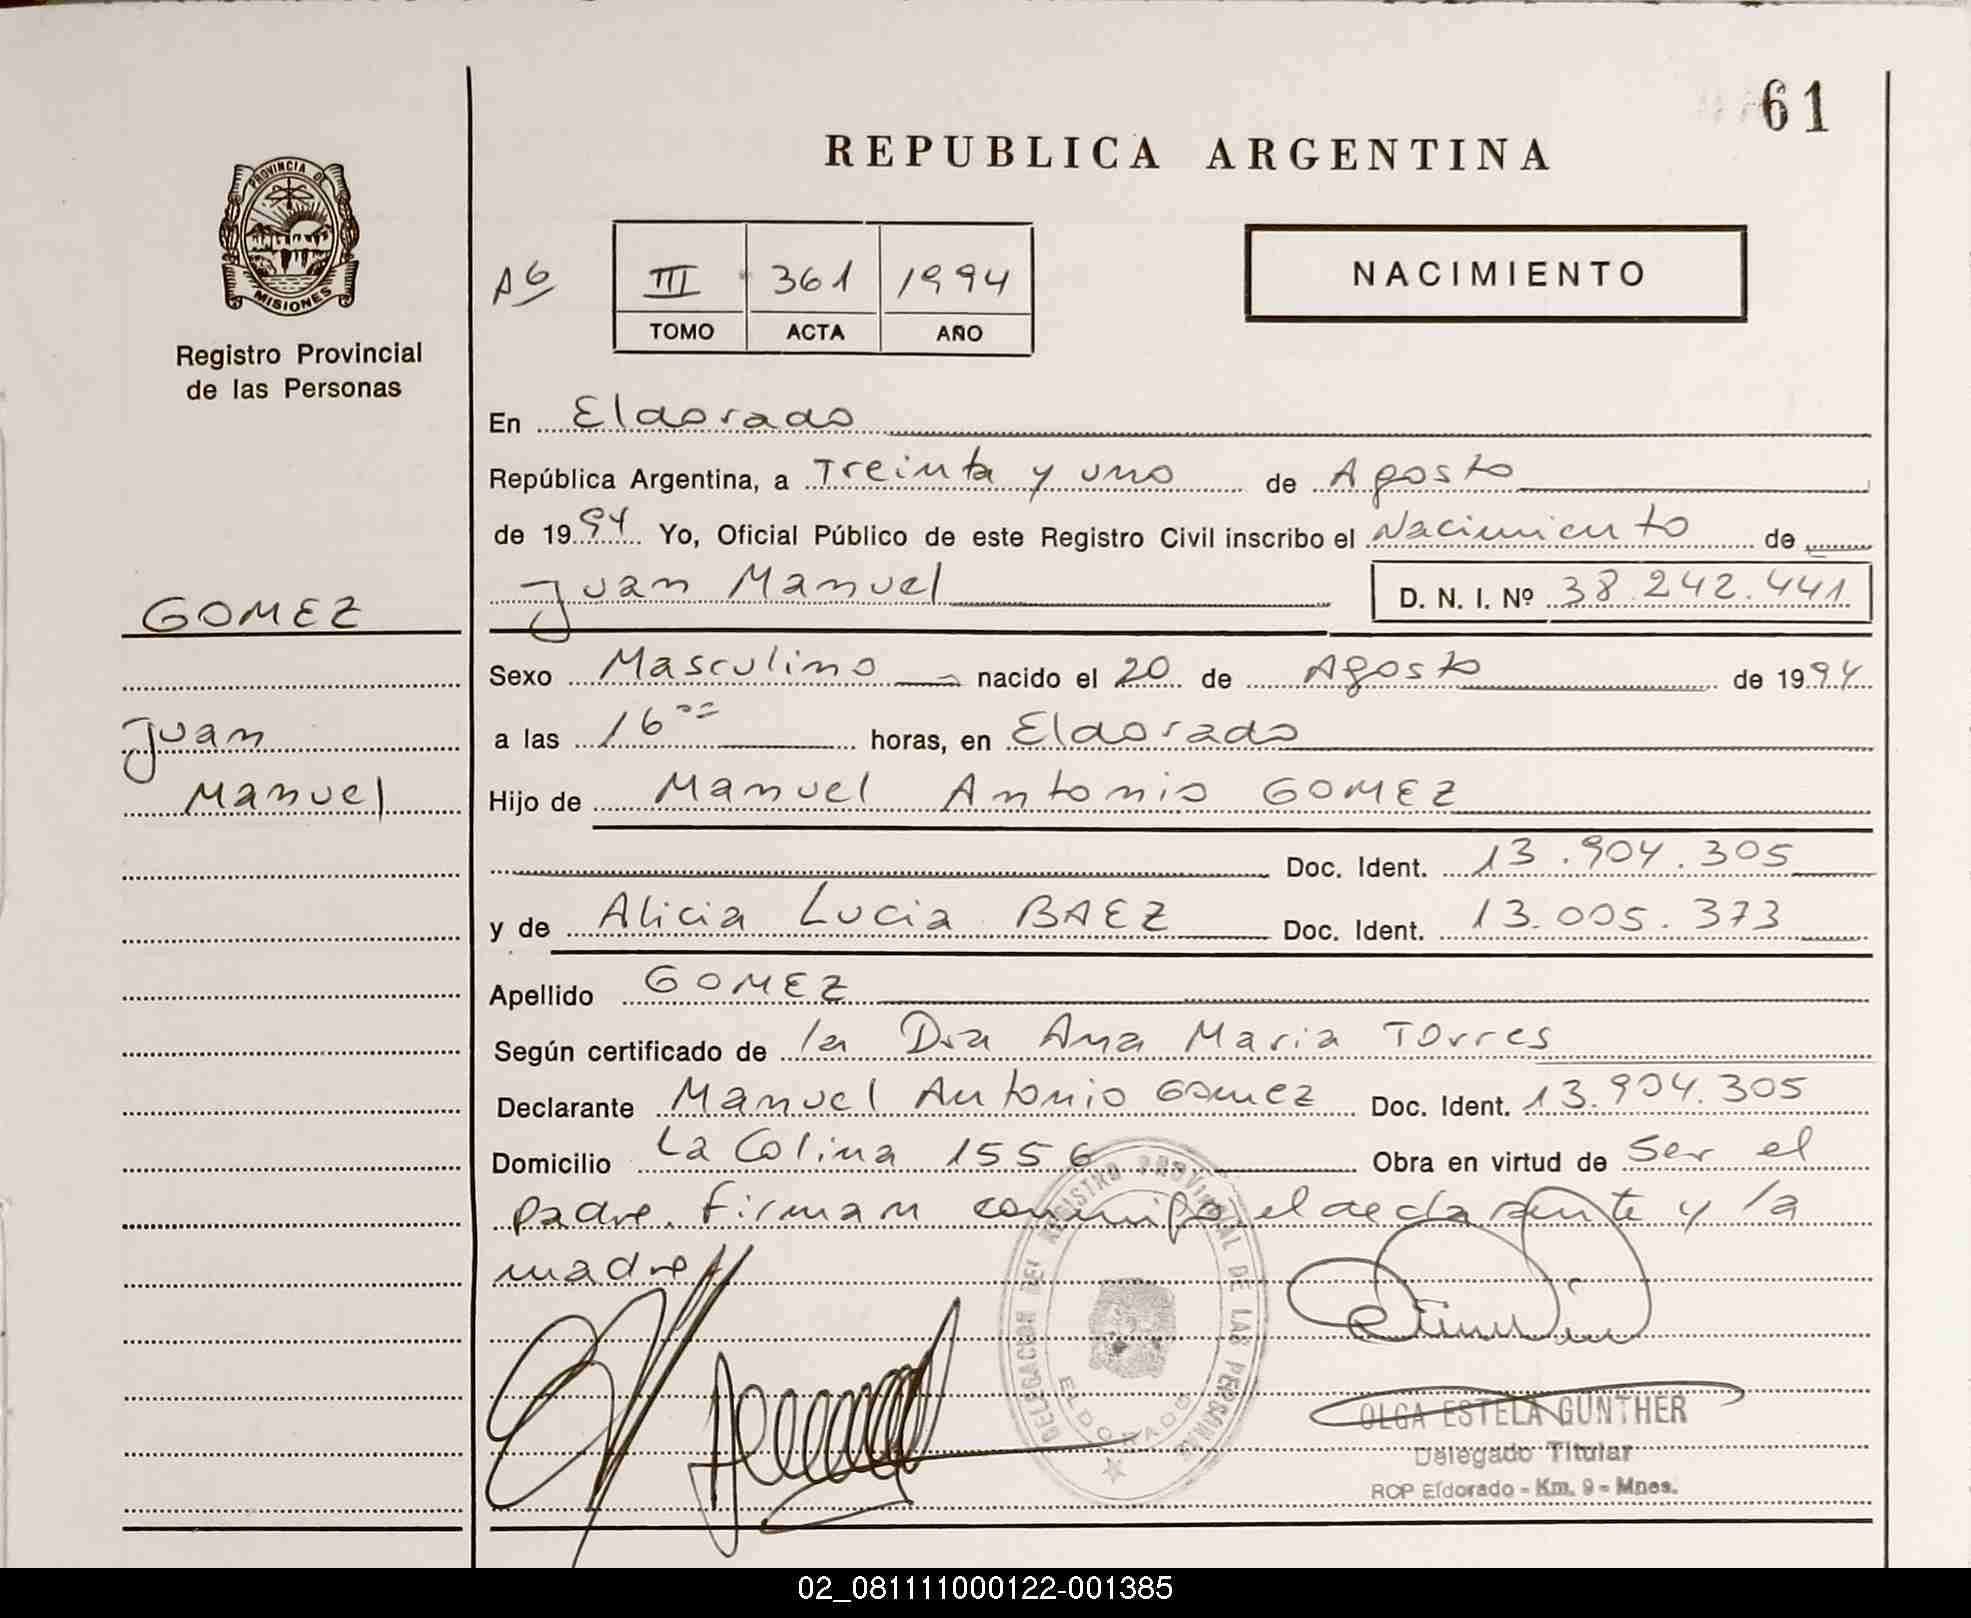 61
REPUBLICA ARGENTINA
PROVINCIA DE
MISIONES
Registro Provincial
de las Personas
A6
III 361 1994
TOMO ACTA AÑO
NACIMIENTO
En Eldorado
República Argentina, a Treinta y uno de Agosto
de 1994 Yo, Oficial Público de este Registro Civil inscribo el Nacimiento de
Juan Manuel D. N. I. Nº 38.242.441
GOMEZ
Juan
Manuel
Sexo Masculino nacido el 20 de Agosto de 1994
a las 16 00 horas, en Eldorado
Hijo de Manuel Antonio GOMEZ
Doc. Ident. 13.904.305
y de Alicia Lucia BAEZ Doc. Ident. 13.005.373
Apellido GOMEZ
Según certificado de la Dra Ana Maria Torres
Declarante Manuel Antonio Gomez Doc. Ident. 13.904.305
Domicilio La Colina 1556 Obra en virtud de ser el
padre. Firman conmigo el declarante y la
madre
DELEGACION DEL REGISTRO PROVINCIAL DE LAS PERSONAS
ELDORADO
OLGA ESTELA GUNTHER
Delegado Titular
RCP Eldorado - Km. 9 - Mnes.
02_081111000122-001385